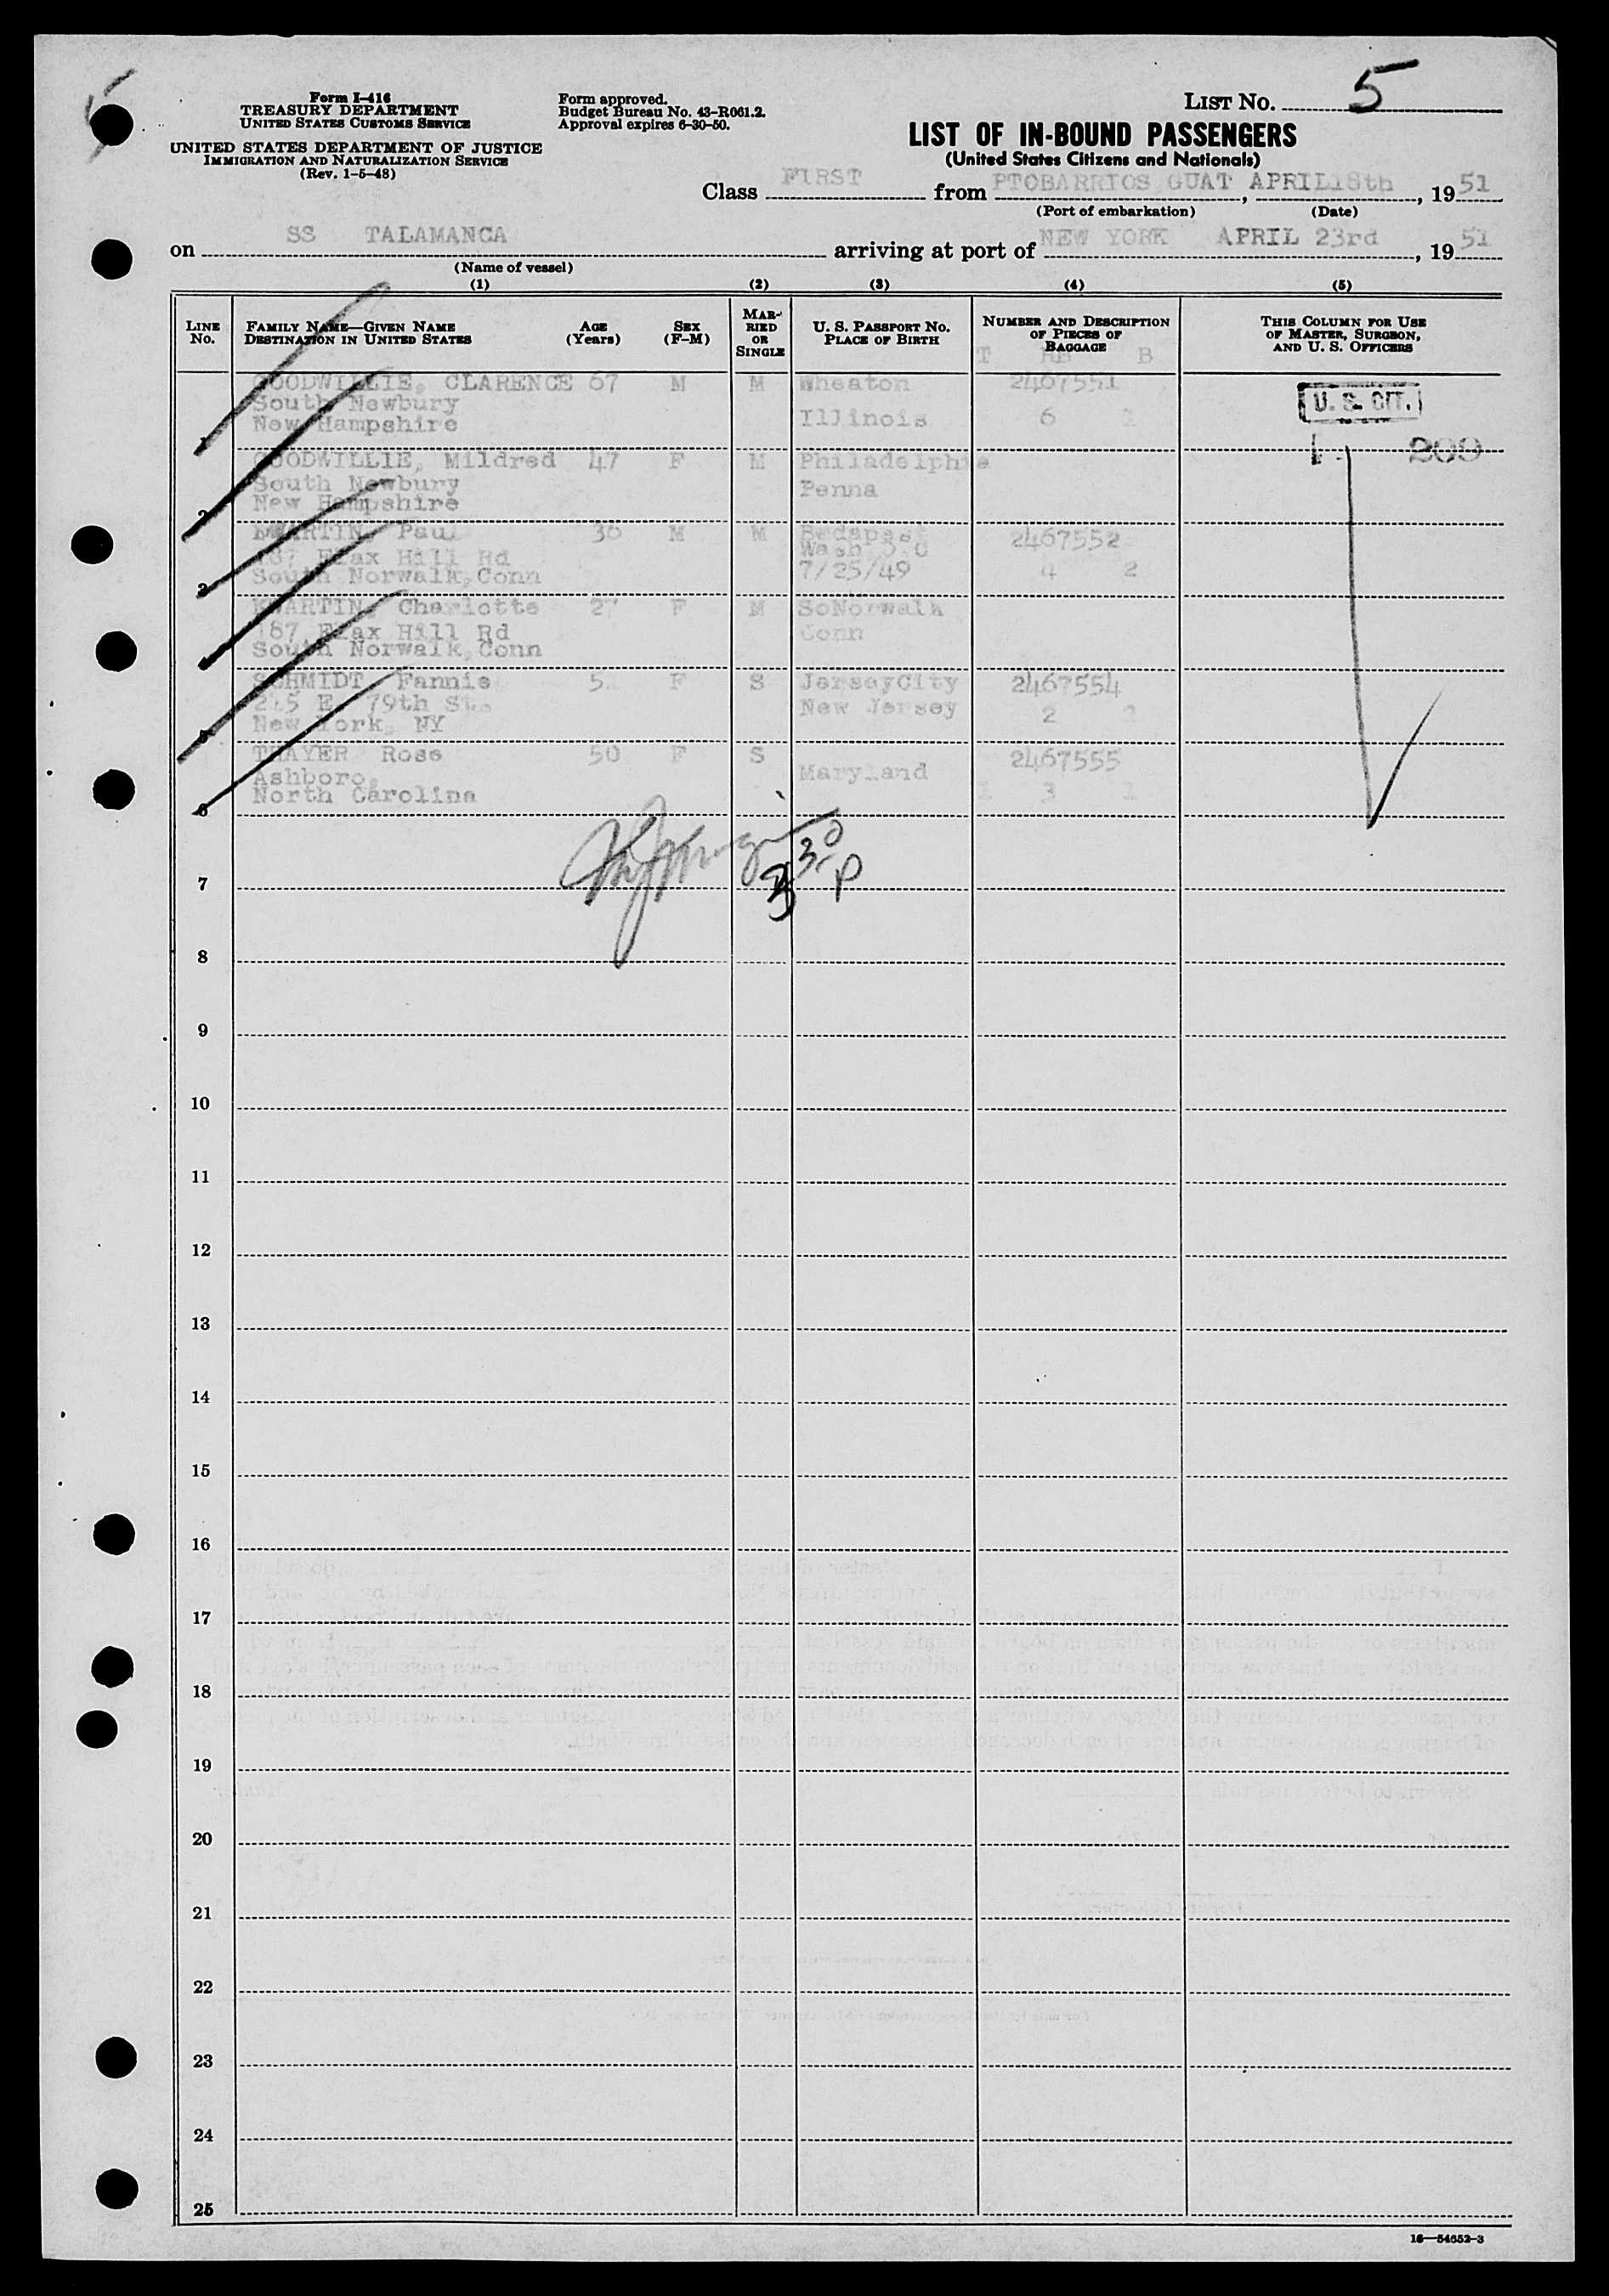 5
Form I-416
TREASURY DEPARTMENT
UNITED STATES CUSTOMS SERVICE
UNITED STATES DEPARTMENT OF JUSTICE
IMMIGRATION AND NATURALIZATION SERVICE
(Rev. 1-5-48)
Form approved.
Budget Bureau No. 43-R061.2.
Approval expires 6-30-50.
LIST NO. 5
LIST OF IN-BOUND PASSENGERS
(United States Citizens and Nationals)
Class FIRST from PTOBARRIOS GUAT, APRIL18th, 1951
(Port of embarkation) (Date)
on SS TALAMANCA arriving at port of NEW YORK APRIL 23rd, 1951
(Name of vessel)
(1) (2) (3) (4) (5)
LINE NO.
FAMILY NAME—GIVEN NAME
DESTINATION IN UNITED STATES
AGE (Years)
SEX (F-M)
MARRIED OR SINGLE
U. S. PASSPORT NO.
PLACE OF BIRTH
NUMBER AND DESCRIPTION OF PIECES OF BAGGAGE
THIS COLUMN FOR USE OF MASTER, SURGEON, AND U. S. OFFICERS
T HB B
GOODWILLIE, CLARENCE 67 M M Wheaton 2467551
South Newbury
New Hampshire Illinois 6 1
U. S. CIT.
1
200
GOODWILLIE, Mildred 47 F M Philadelphia
South Newbury
New Hampshire Penna
2
Paul M M Budapest 2467552
Flax Hill Rd Wash D.C
South Norwalk, Conn 7/25/49 4 2
3
KWARTIN, Charlotte F M SoNorwalk
187 Flax Hill Rd Conn
South Norwalk, Conn
4
SCHMIDT Fannie F S JerseyCity 2467554
E. 79th St. New Jersey 2
New York, NY
5
THAYER Rose 50 F S 2467555
Ashboro, Maryland
North Carolina 1 3 1
6
3 30 P
7
8
9
10
11
12
13
14
15
16
17
18
19
20
21
22
23
24
25
16—54652-3